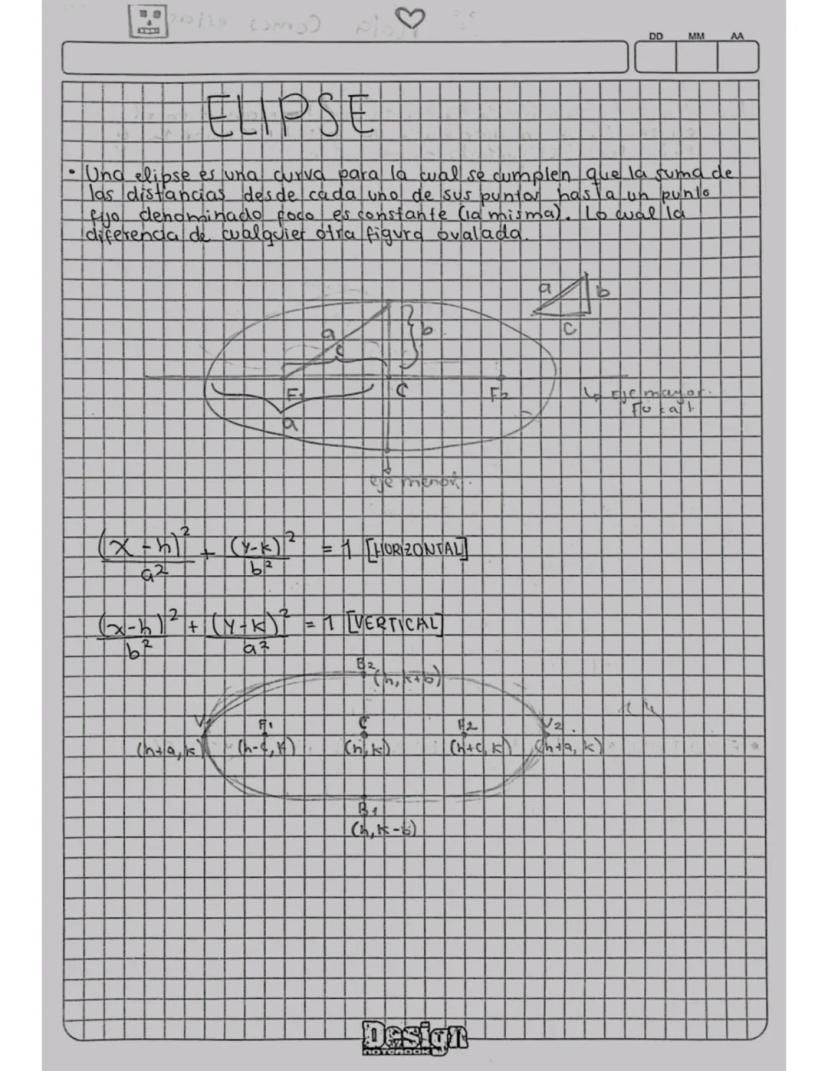 DD MM AA
ELIPSE
• Una elipse es una curva para la cual se cumplen que la suma de
las distancias desde cada uno de sus puntos hasta un punto
fijo denominado foco es constante (la misma). Lo cual la
diferencia de cualquier otra figura ovalada.
a b
c
a b
c
F₁ C F₂
a
↳ eje mayor.
Focal.
eje menor.
(x-h)²/a² + (y-k)²/b² = 1 [HORIZONTAL]
(x-h)²/b² + (y-k)²/a² = 1 [VERTICAL]
B₂
(h, k+b)
V₁ F₁ C F₂ V₂
(h+a, k) (h-c, k) (h, k) (h+c, k) (h+a, k)
B₁
(h, k-b)
Design
NOTEBOOK